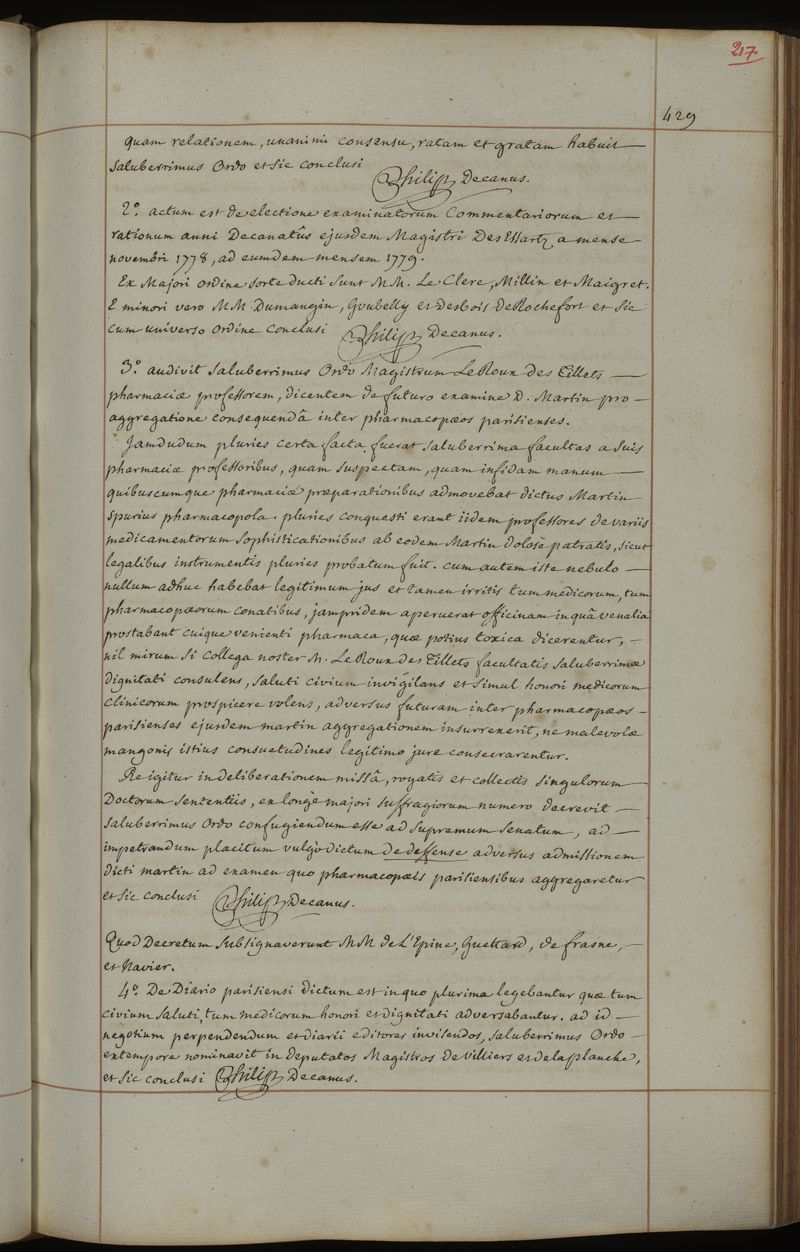 217
429
quam relationem, unanimi consensu, ratam et gratam habuit
Saluberrimus Ordo et sic conclusi
Philip Decanus.
2.° actum est de electione examinatorum Commentariorum et
rationum anni Decanatûs ejusdem Magistri DesEssartz a mense
novembri 1778, ad eumdem mensem 1779.
Ex Majori ordine sorte ducti sunt M M. Le Clerc, Millin et Maigret.
E minori vero M M Dumangin, Goubelly et desbois deRochefort et sic
cum universo ordine conclusi Philip Decanus.
3.° audivit saluberrimus Ordo Magistrum LeRoux des Tillets
pharmaciæ professorem, dicentem de futuro examine D. Martin pro
aggregatione consequendâ inter pharmacopæos parisienses.
Jamdudum pluries certa facta fuerat saluberrima facultas a suis
pharmaciæ professoribus, quam suspectam, quam infidam manum
quibuscumque pharmaciæ præparationibus admovebat dictus Martin
spurius pharmacopola. pluries conquesti erant iidem professores de variis
medicamentorum sophisticationibus ab eodem Martin dolosè patratis, sicut
legalibus instrumentis pluries probatum fuit. cum autem iste nebulo
nullum adhuc habebat legitimum jus et tamen irritis tum medicorum, tum
pharmacopæorum conatibus, jampridem aperuerat officinam in quâ venalia
prostabant cuique venienti pharmaca, quæ potius toxica dicerentur,
nil mirum si collega noster M. LeRoux des Tillets facultatis saluberrimæ
dignitati consulens, saluti civium invigilans et simul honori medicorum
clinicorum prospicere volens, adversus futuram inter pharmacopæos
parisienses ejusdem martin aggregationem insurrexerit, ne malevolæ
mangonis istius consuetudines legitimo jure consecrarentur.
Re igitur in deliberationem missâ, rogatis et collectis singulorum
Doctorum sententiis, ex longè majori suffragiorum numero decrevit
saluberrimus Ordo confugiendum esse ad supremum senatum, ad
impetrandum placitum vulgò dictum de deffense adversus admissionem
dicti martin ad examen quo pharmacopæis parisiensibus aggregaretur
et sic conclusi Philip Decanus.
Quod Decretum subsignaverunt M M de L'Epine, Guettard, de frasne,
et Navier.
4.° De Diario parisiensi dictum est in quo plurima legebantur quæ tum
civium saluti, tum medicorum honori et dignitati adversabantur. ad id
negotium perpendendum et diarii editores invisendos, saluberrimus Ordo
extempore nominavit in deputatos Magistros de Villiers et delaplanche,
et sic conclusi Philip Decanus.